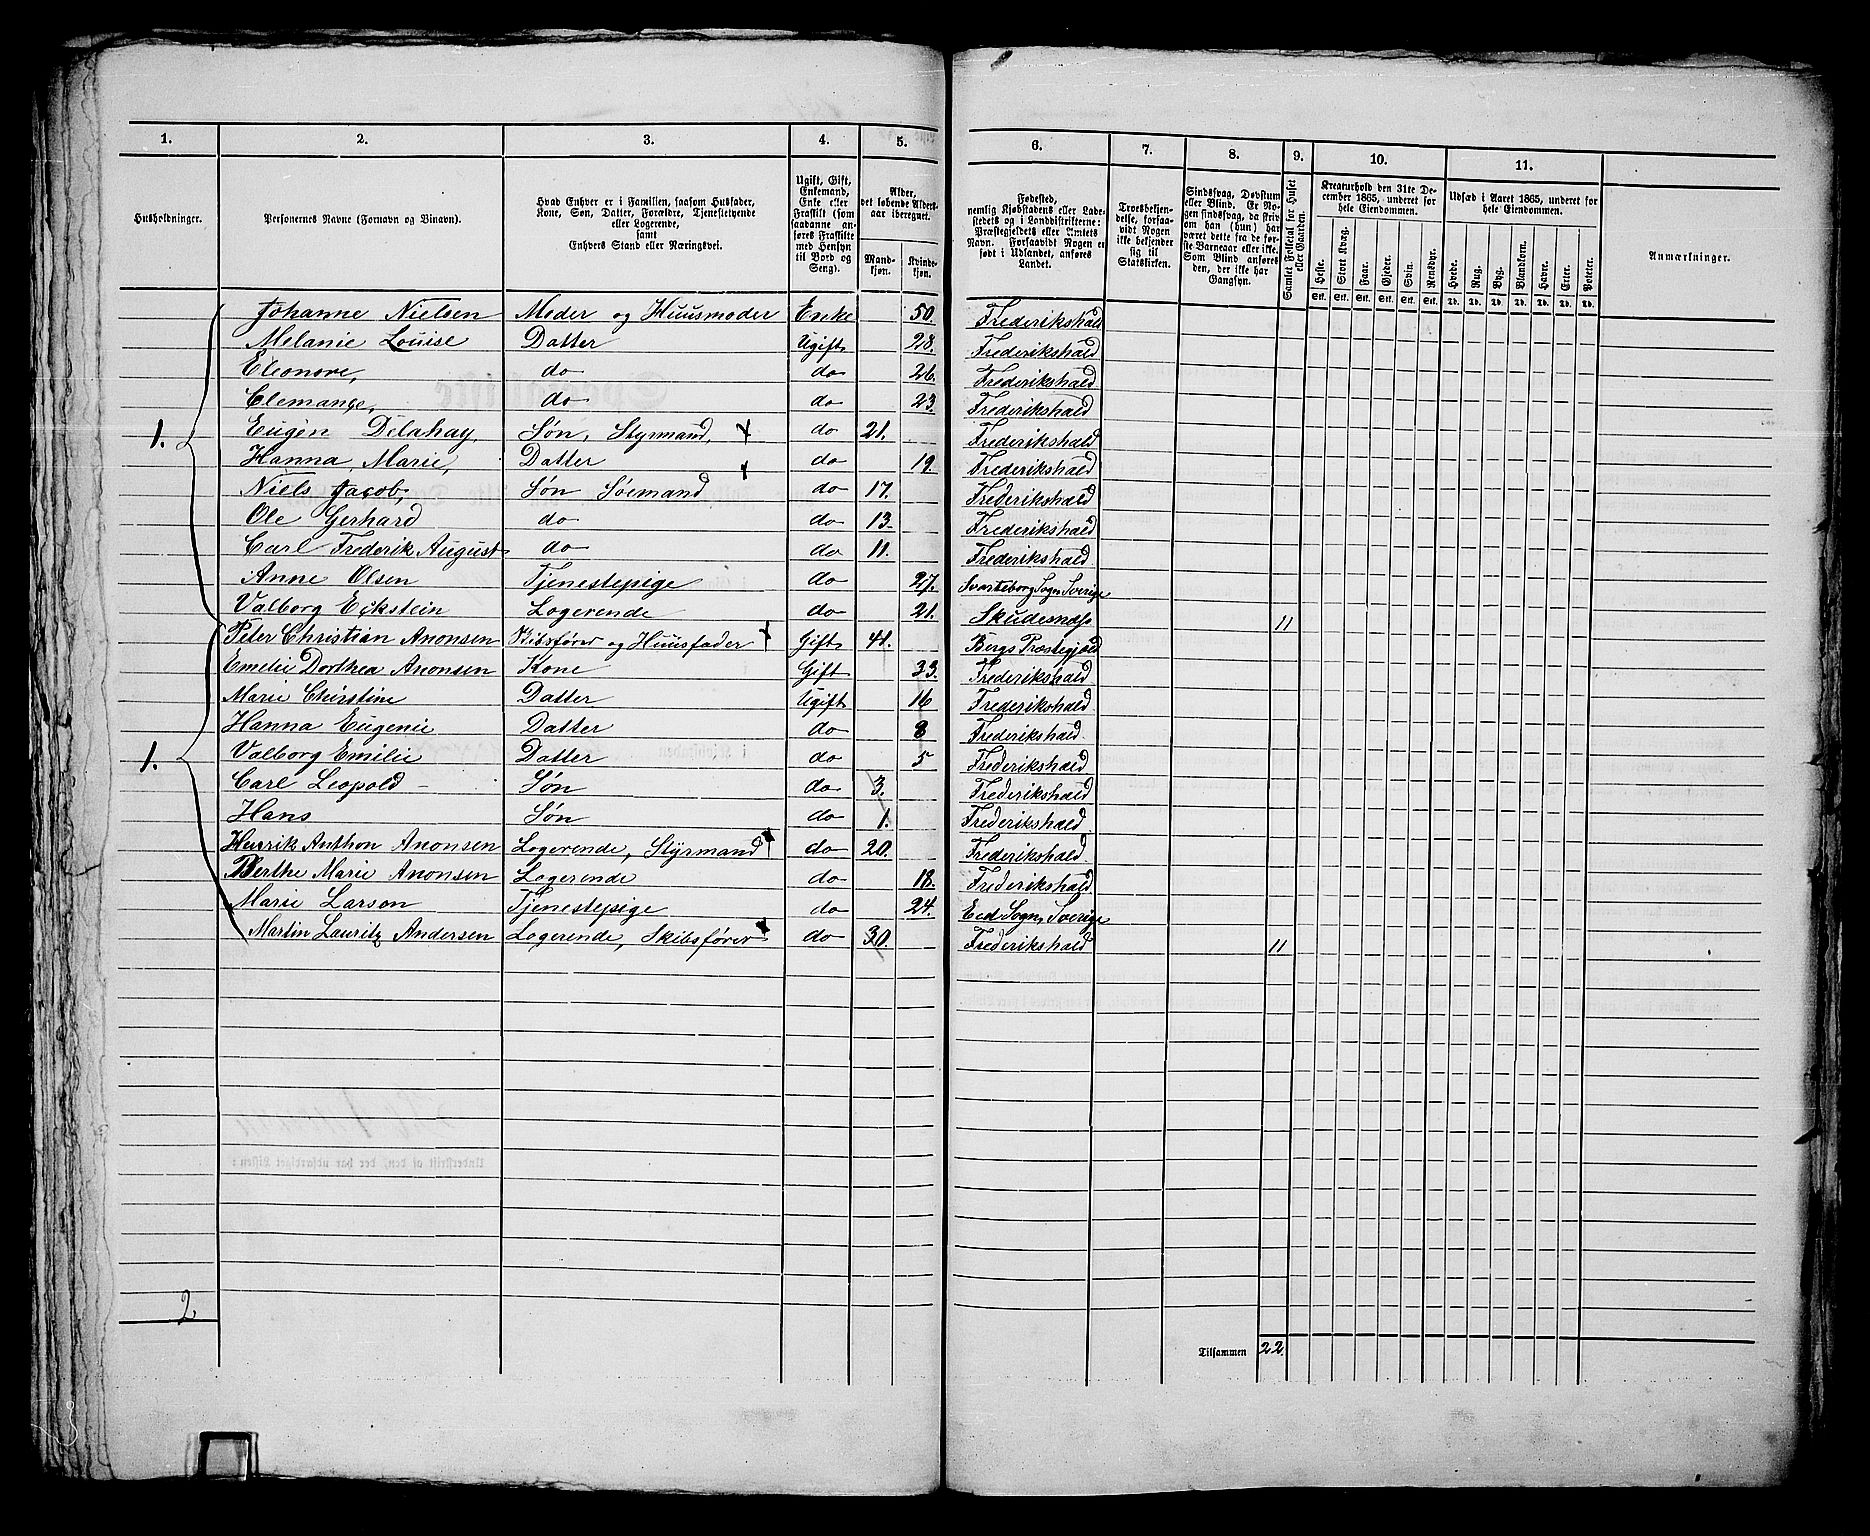 1. 2. 3. 4. 5. 6. 7. 8. 9. 10. 11.
Husholdninger.
Personernes Navne (Fornavn og Binavn).
Hvad Enhver er i Familien, saasom Husfader,
Kone, Søn, Datter, Forældre, Tjenestetyende
eller Logerende,
samt
Enhvers Stand eller Næringsvei.
Ugift, Gift,
Enkemand,
Enke eller
Fraskilt (som
saadanne an-
føres Fraskilte
med Hensyn
til Bord og
Seng).
Alder,
det løbende Alders-
aar iberegnet.
Mand-
kjøn.
Kvinde-
kjøn.
Fødested,
nemlig Kjøbstadens eller Lade-
stedets og i Landdistrikterne:
Præstegjeldets eller Amtets
Navn. Forsaavidt Nogen er
født i Udlandet, anføres
Landet.
Troesbekjen-
delse, forsaa-
vidt Nogen
ikke bekjender
sig til
Statskirken.
Sindssvag, Døvstum
eller Blind. Er No-
gen sindssvag, da skriv
om han (hun) har
været dette fra de før-
ste Barneaar eller ikke.
Som Blind anføres
den, der ikke har
Gangsyn.
Samlet Folketal for Huset
eller Gaarden.
Kreaturhold den 31te De-
cember 1865, underet for
hele Eiendommen.
Heste. Stort Kvæg. Faar. Gjeder. Svin. Rensdyr.
Stk. Stk. Stk. Stk. Stk. Stk.
Udsæd i Aaret 1865, underet for
hele Eiendommen.
Hvede. Rug. Byg. Blandkorn. Havre. Erter. Poteter.
Td. Td. Td. Td. Td. Td. Td.
Anmærkninger.
Johanne Nielsen Moder og Huusmoder Enke 50. Frederikshald
Melanie Louise Datter Ugift 28. Frederikshald
Eleonore, do do 26. Frederikshald
Clemange, do do 23. Frederikshald
1. Eugén Delahay Søn, Styrmand, x do 21. Frederikshald
Hanna Marie Datter do 19. Frederikshald
Niels Jacob, Søn Sømand x do 17. Frederikshald
Ole Gerhard do do 13. Frederikshald
Carl Frederik August do do 11. Frederikshald
Anne Olsen Tjenestepige do 27. Svarteborg Sogn Sverige
Valborg Eckstein Logerende do 21. Skudesnæs 11
Peter Christian Anonsen Skibsfører og Huusfader x Gift 41. Bergs Præstegjæld
Emelie Dorthea Anonsen Kone Gift 33. Frederikshald
Marie Christine Datter Ugift 16 Frederikshald
Hanna Eugenie Datter do 8 Frederikshald
1. Valborg Emilie Datter do 5 Frederikshald
Carl Leopold – Søn do 3. Frederikshald
Hans Søn do 1. Frederikshald
Henrik Anthon Anonsen Logerende, Styrmand x do 20. Frederikshald
Berthe Marie Anonsen Logerende do 18. Frederikshald
Marie Larson Tjenestepige do 24. Eed Sogn Sverige
Martin Lauritz Andersen Logerende, Skibsfører x do 30. Frederikshald 11
2.
Tilsammen 22.